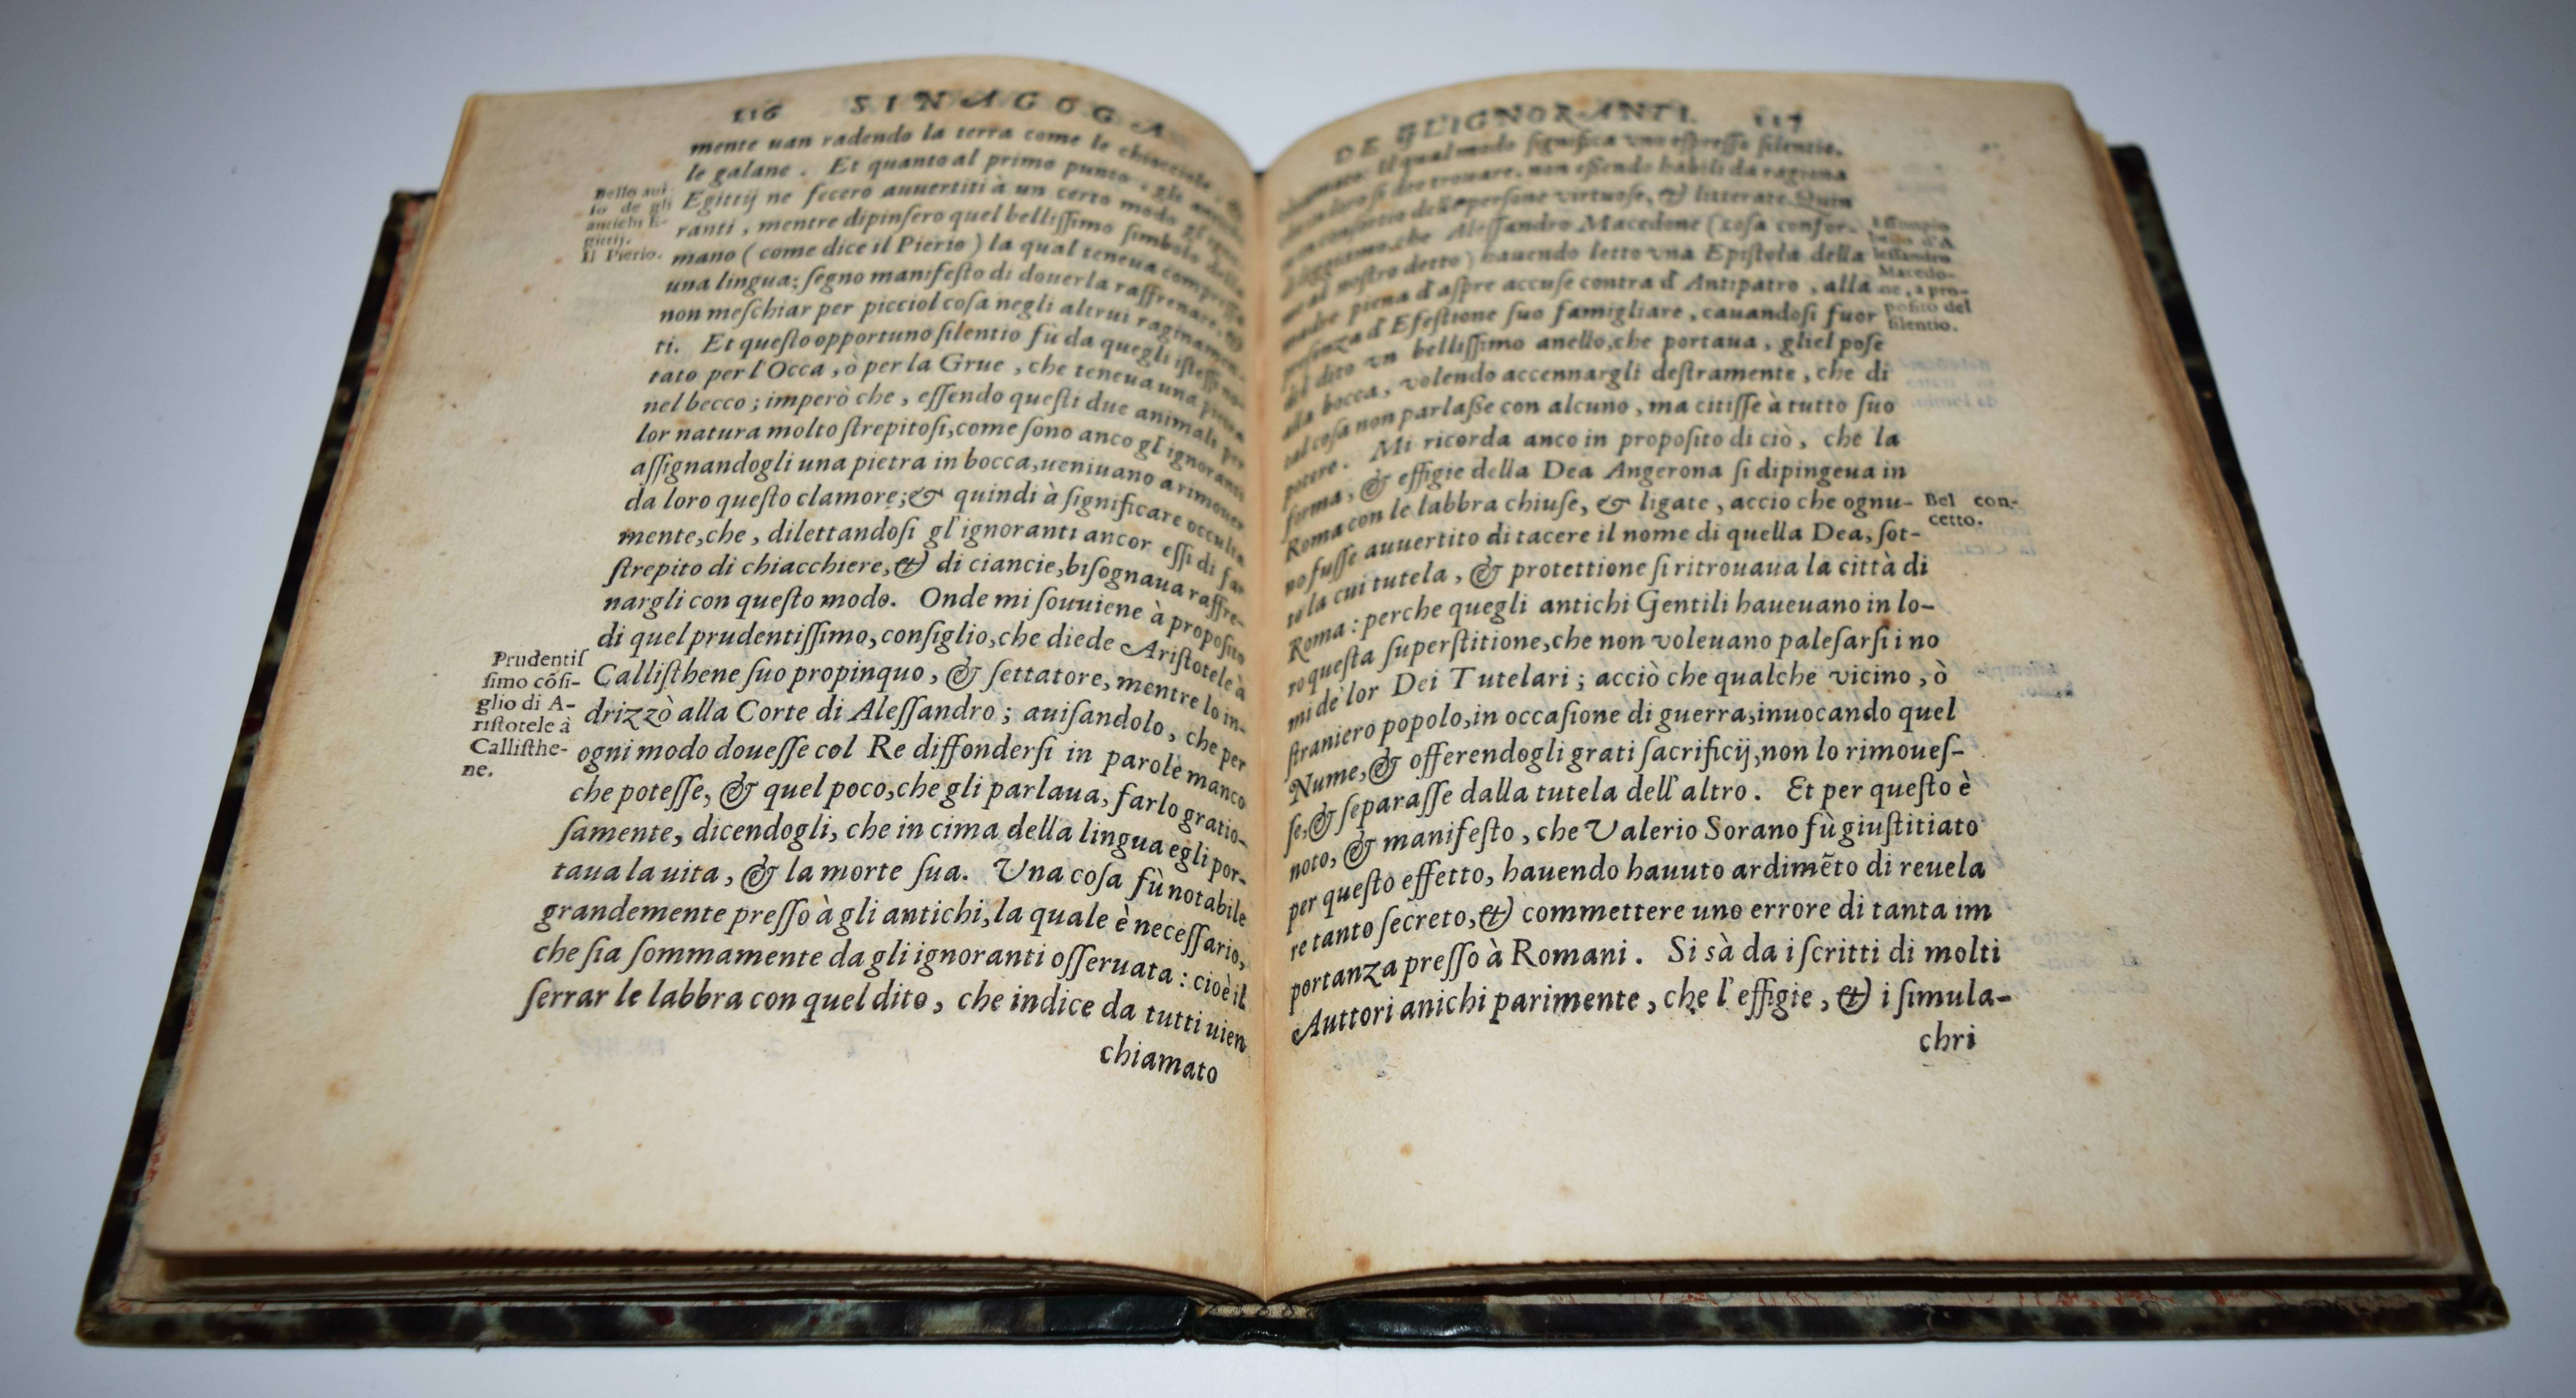 116 SINAGOGA
mente uan radendo la terra come le chiocciole,
le galane. Et quanto al primo punto, gli antichi
Egittij ne fecero auuertiti à un certo modo gl'igno-
ranti, mentre dipinſero quel belliſſimo ſimbolo della
mano (come dice il Pierio) la qual teneua compreſſa
una lingua; ſegno manifeſto di douerla raffrenare, &
non meſchiar per picciol coſa negli altrui raginamen-
ti. Et queſto opportuno ſilentio fù da quegli iſteſſi no-
tato per l'Occa, ò per la Grue, che teneua una pietra
nel becco; imperò che, eſſendo queſti due animali per
lor natura molto ſtrepitoſi, come ſono anco gl'ignoranti
aſſignandogli una pietra in bocca, ueniuano a rimouer
da loro queſto clamore; & quindi à ſignificare occulta
mente, che, dilettandoſi gl'ignoranti ancor eſſi di far
ſtrepito di chiacchiere, & di ciancie, biſognaua raffre-
nargli con queſto modo. Onde mi ſouuiene à propoſito
di quel prudentiſſimo, conſiglio, che diede Ariſtotele à
Calliſthene ſuo propinquo, & ſettatore, mentre lo in-
drizzò alla Corte di Aleſſandro; auiſandolo, che per
ogni modo doueſſe col Re diffonderſi in parole manco
che poteſſe, & quel poco, che gli parlaua, farlo gratio-
ſamente, dicendogli, che in cima della lingua egli por-
taua la uita, & la morte ſua. Una coſa fù notabile
grandemente preſſo à gli antichi, la quale è neceſſario,
che ſia ſommamente da gli ignoranti oſſeruata: cioè il
ſerrar le labbra con quel dito, che indice da tutti uien
chiamato
Bello aui
ſo de gli
antichi E-
gittij.
Il Pierio.
Prudentiſ
ſimo cõſi-
glio di A-
riſtotele à
Calliſthe-
ne.
DE GLIGNORANTI. 117
chiamato. Il qual modo ſignifica vno eſpreſſo ſilentio,
che in loro ſi dee trouare, non eſſendo habili da ragiona
re in conſortio delle perſone virtuoſe, & litterate. Quin
di leggiamo, che Aleſſandro Macedone (coſa confor-
me al noſtro detto) hauendo letto vna Epiſtola della
madre piena d'aſpre accuſe contra d'Antipatro, alla
preſenza d'Efeſtione ſuo famigliare, cauandoſi fuor
del dito vn belliſſimo anello, che portaua, gliel poſe
alla bocca, volendo accennargli deſtramente, che di
tal coſa non parlaße con alcuno, ma citiſſe à tutto ſuo
potere. Mi ricorda anco in propoſito di ciò, che la
forma, & effigie della Dea Angerona ſi dipingeua in
Roma con le labbra chiuſe, & ligate, accio che ognu-
no fuſſe auuertito di tacere il nome di quella Dea, ſot-
to la cui tutela, & protettione ſi ritrouaua la città di
Roma: perche quegli antichi Gentili haueuano in lo-
ro queſta ſuperſtitione, che non voleuano paleſarſi i no
mi de' lor Dei Tutelari; acciò che qualche vicino, ò
ſtraniero popolo, in occaſione di guerra, inuocando quel
Nume, & offerendogli grati ſacrificij, non lo rimoueſ-
ſe, & ſeparaſſe dalla tutela dell'altro. Et per queſto è
noto, & manifeſto, che Valerio Sorano fù giuſtitiato
per queſto effetto, hauendo hauuto ardimẽto di reuela
re tanto ſecreto, & commettere uno errore di tanta im
portanza preſſo à Romani. Si sà da i ſcritti di molti
Auttori anichi parimente, che l'effigie, & i ſimula-
chri
Eſſempio
bello d'A
leſſandro
Macedo-
ne, a pro-
poſito del
ſilentio.
Bel con-
cetto.